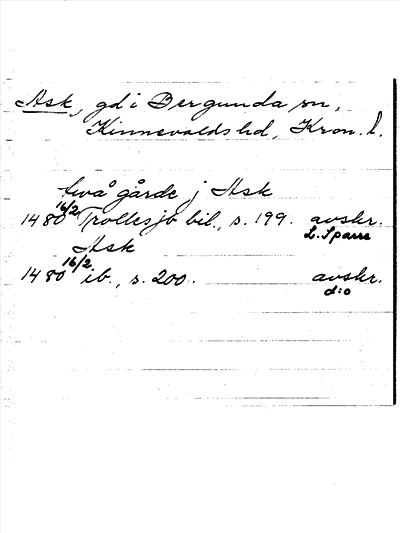 Ask, gd i Bergunda sn,
Kinnevalds hd, Kron. l.
twå gårde j Ask
1480 16/2 Trollesjö bil., s. 199. avskr.
L. Sparre
Ask
1480 16/2 ib., s. 200. avskr.
d:o